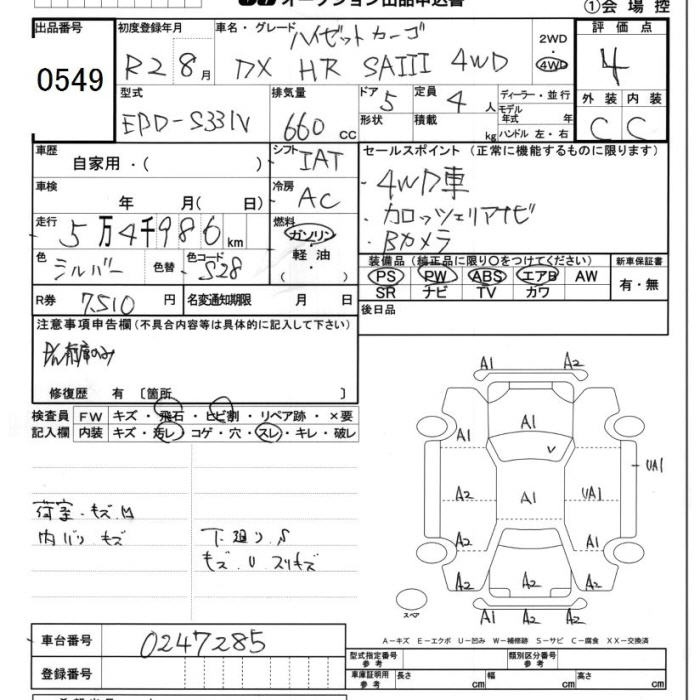 オークション出品申込書
①会場控
出品番号 初度登録年月 車名・グレード ハイゼットカーゴ 2WD 評価点
0549 R2 8月 DX HR SAIII 4WD ・4WD 4
型式 排気量 ドア 5 定員 4人 ディーラー・並行 外装 内装
EBD-S331V 660cc 形状 積載 kg モデル年式 年 ハンドル 左・右 C C
車歴 自家用・( ) シフト IAT セールスポイント (正常に機能するものに限ります)
車検 年 月( 日) 冷房 AC ・4WD車
走行 5万4千986km 燃料 ガソリン・軽油・( ) ・カロッツェリアナビ
・Bカメラ
色 シルバー 色替 色コード S28 装備品 (純正品に限り○をつけてください) 新車保証書
PS PW ABS エアB AW 有・無
SR ナビ TV カワ
R券 7510円 名変通知期限 月 日 後日品
注意事項申告欄(不具合内容等は具体的に記入して下さい)
修復歴 有 〔箇所 〕
検査員 FW キズ・飛石・ヒビ割・リペア跡・×要
記入欄 内装 キズ・汚レ・コゲ・穴・スレ・キレ・破レ
荷室.キズ.M
内バリ キズ
下廻り.S
キズ.U スリキズ
A1 A2
A1 A1
A1 UA1
A2 A1 UA1
A2 A2
A2 A2 A2
A1 A2 A2
スペア
A-キズ E-エクボ U-凹み W-補修跡 S-サビ C-腐食 XX-交換済
車台番号 0247285
型式指定番号 参考 類別区分番号 参考
登録番号 車庫証明用 参考 長さ cm 幅 cm 高さ cm